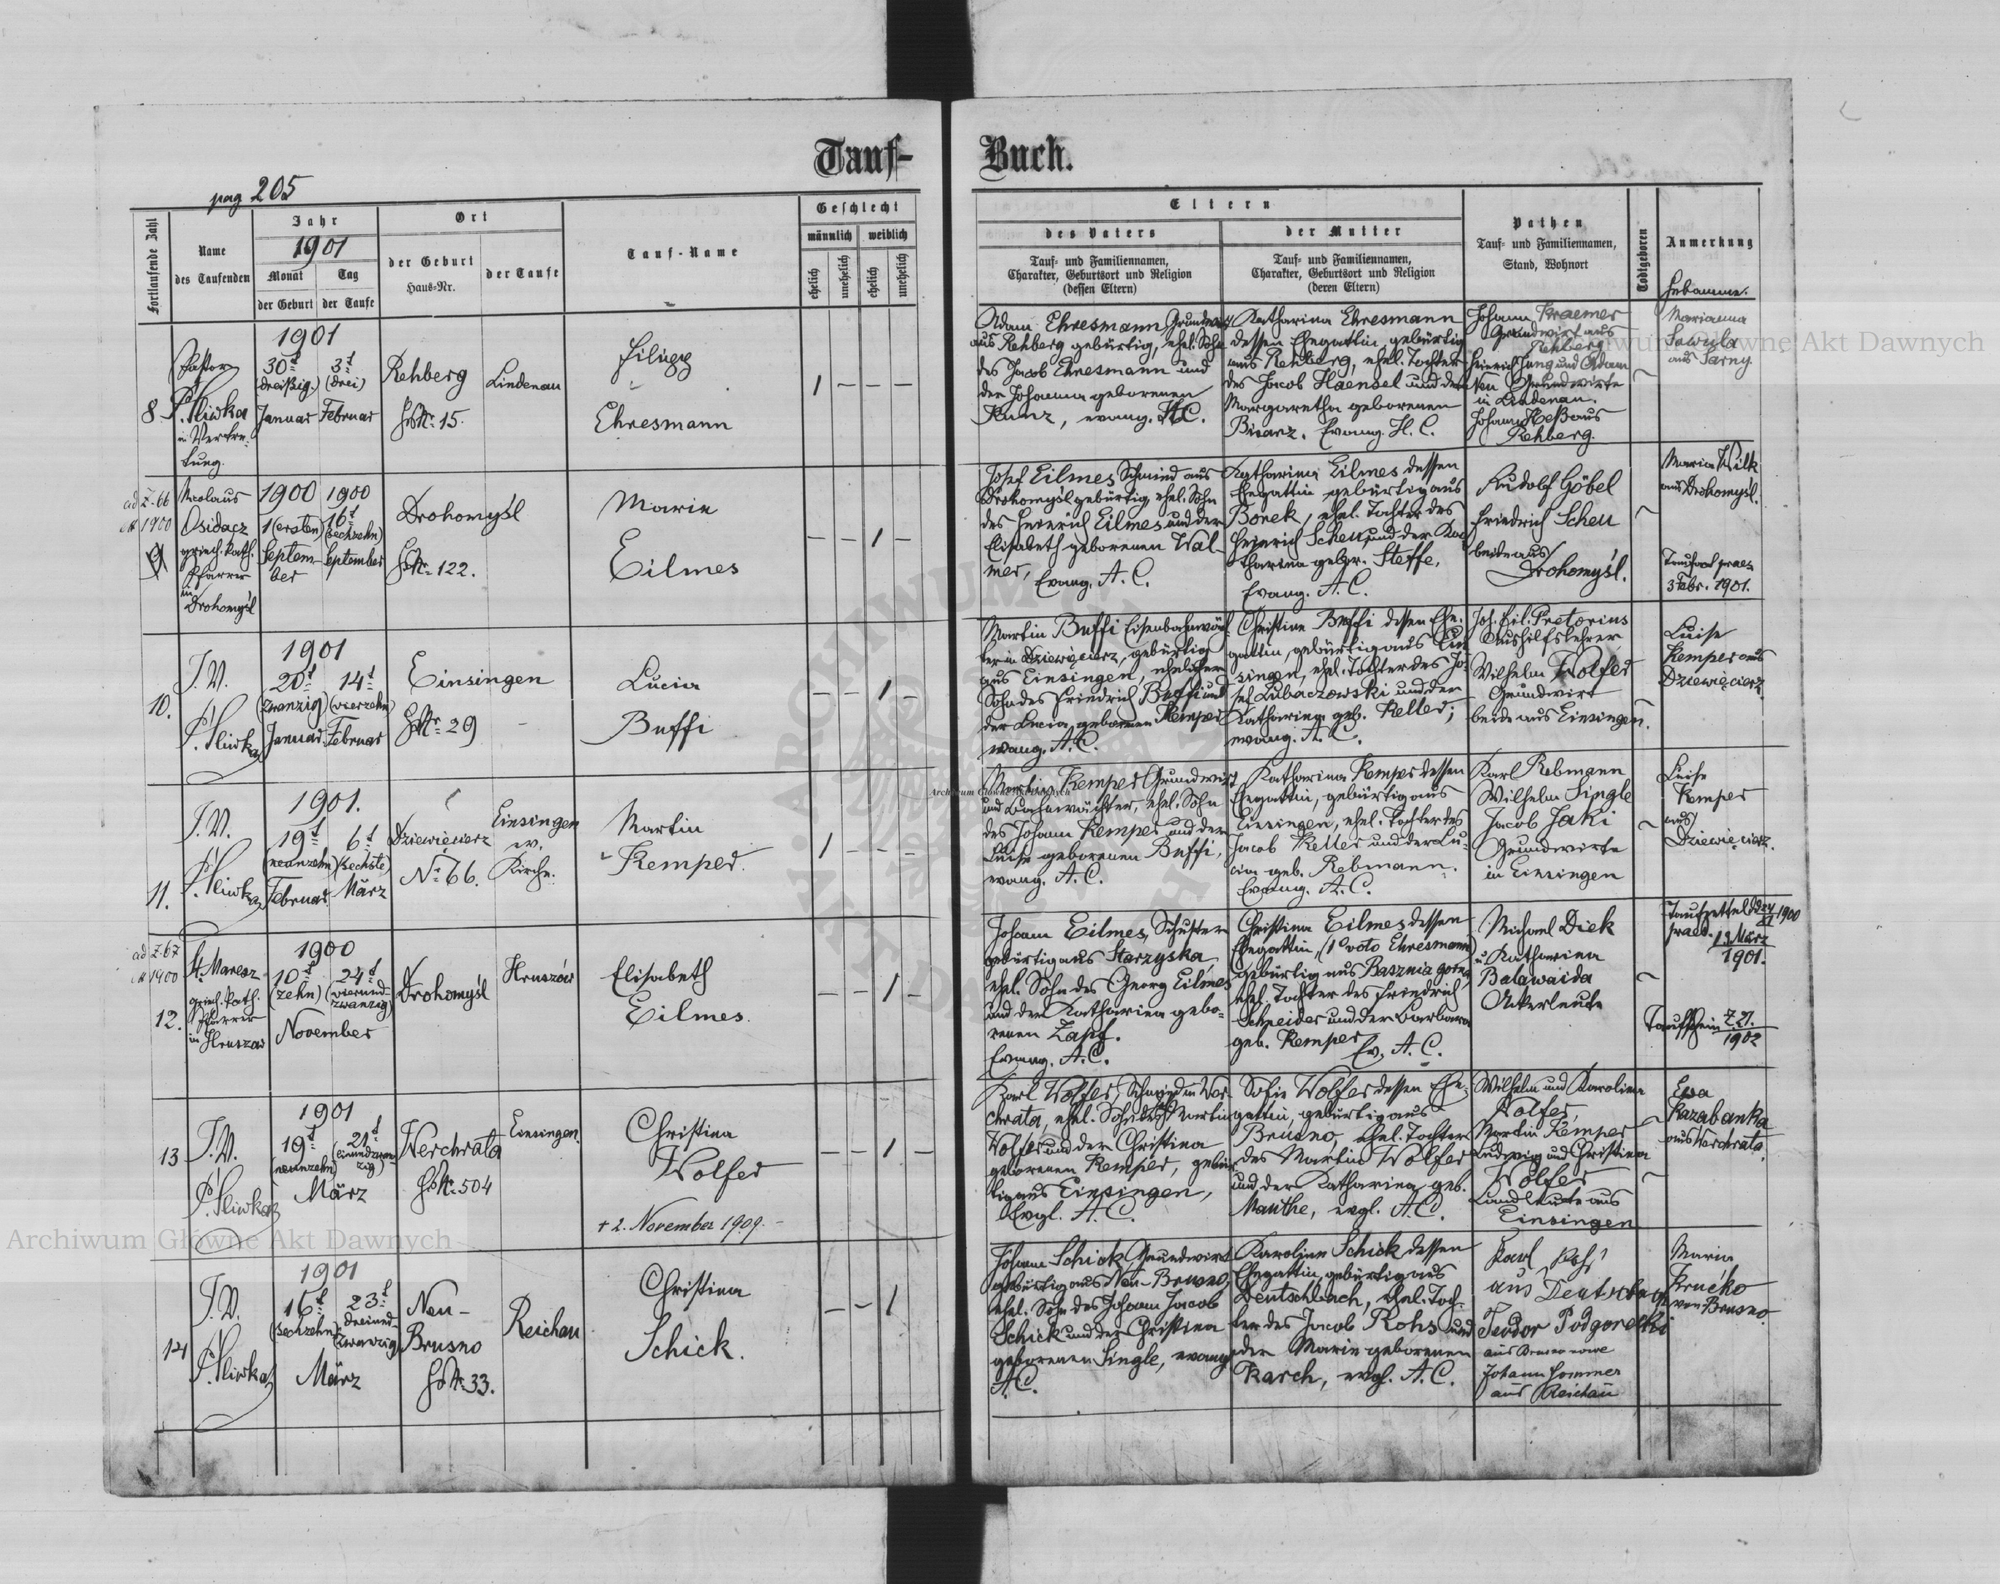 Tauf-
Buch.
pag 205
Fortlaufende Zahl
Name
des Taufenden
Jahr
1901
Monat
der Geburt
Tag
der Taufe
Ort
der Geburt
Haus-Nr.
der Taufe
Tauf-Name
Geschlecht
männlich
weiblich
ehelich
unehelich
ehelich
unehelich
Eltern
des Vaters
Tauf- und Familiennamen,
Charakter, Geburtsort und Religion
(dessen Eltern)
der Mutter
Tauf- und Familiennamen,
Charakter, Geburtsort und Religion
(deren Eltern)
Pathen
Tauf- und Familiennamen,
Stand, Wohnort
Todtgeboren
Anmerkung
Hebamme.
8
Pastor
P. Sliwka
in Vertre-
tung.
1901
30t
(dreißig)
Januar
3t
(drei)
Februar
Rehberg
HsNr. 15.
Lindenau
Filipp
Ehresmann
1 – – –
Adam Ehresmann Grundwirt
aus Rehberg gebürtig, ehel. Sohn
des Jacob Ehresmann und
der Johanna geborenen
Kunz, evang. H.C.
Katharina Ehresmann
dessen Ehegattin gebürtig
aus Rehberg, ehel. Tochter
des Jacob Haensel und der
Margaretha geborenen
Evang. H. C.
Johann Kraemer
Grundwirt aus
Rehberg
Heinrich Jung und Adam
Grundwirte
in Lindenau.
Johann Heß aus
Rehberg.
Marianna
Sawula
aus Sarny
ad Z. 66
1900
9
Nicolaus
Osidacz
griech. kath.
Pfarrer
in
Drohomyśl
1900
1 (ersten)
Septem-
ber
1900
16t
(sechzehn)
September
Drohomyśl
HsNr. 122.
Marie
Eilmes
– – 1 –
Josef Eilmes, Schmied aus
Drohomyśl gebürtig, ehel. Sohn
des Heinrich Eilmes und der
Elisabeth geborenen Wal-
mer,
Evang. A. C.
Katharina Eilmes dessen
Ehegattin gebürtig aus
Borek, ehel. Tochter des
Heinrich Scheu und der Ka-
tharina gebor. Steffe,
Evang. A. C.
Rudolf Göbel
Friedrich Scheu
beide aus
Drohomyśl.
Maria Wilk
aus Drohomyśl.
3 Febr. 1901.
10.
I. V.
P. Sliwka
1901
20t
(zwanzig)
Januar
14t
(vierzehn)
Februar
Einsingen
HsNr. 29
Lucia
Buffi
– – 1 –
Martin Buffi Eisenbahnwäch-
ter in Dziewięcierz, gebürtig
aus Einsingen, ehelicher
Sohn des Friedrich Buffi und
der Lucia geborenen Kemper
evang. A.C.
Christine Buffi dessen Ehe-
gattin, gebürtig aus Ein-
singen, ehel. Tochter des Jo-
sef Lubaczowski und der
Katharina geb. Keller;
evang. A. C.
Joh. Fil. Pretorius
Aushilfslehrer
Wilhelm Wolfer
Grundwirt
beide aus Einsingen.
Luise
Kemper aus
Dziewięcierz
11.
I. V.
P. Sliwka
1901.
19t
(neunzehn)
Februar
6t
(sechste)
März
Dziewięcierz
Nr 66.
Einsingen
ev.
Kirche.
Martin
Kemper.
1 – – –
Martin Kemper Grundwirt
und Bahnwächter, ehel. Sohn
des Johann Kemper und der
Luise geborenen Buffi,
evang. A. C.
Katharina Kemper dessen
Ehegattin, gebürtig aus
Einsingen, ehel. Tochter des
Jacob Keller und der Lu-
cia geb. Rebmann.
Evang. A. C.
Karl Rebmann
Wilhelm Single
Jacob Jaki
Grundwirte
in Einsingen
Luise
Kemper
aus
Dziewięcierz.
ad Z. 67
1900
12.
griech. kath.
Pfarrer
in Hruszów
1900
10t
(zehn)
24t
(vierund-
zwanzig)
November
Drohomyśl
Hruszów
Elisabeth
Eilmes.
– – 1 –
Johann Eilmes, Schuster
gebürtig aus Starzyska
ehel. Sohn des Georg Eilmes
und der Katharina gebo-
renen Zapf.
Evang. A. C.
Christina Eilmes dessen
Ehegattin, (1o voto Ehresmann)
gebürtig aus Basznia gorna,
ehel. Tochter des Friedrich
Schneider und der Barbara
geb. Kemper
Ev. A. C.
Michael Diek
u. Katharina
Balawaida
Ackerleute
13 März
1901.
Taufschein Z 21.
1902
13
I. V.
P. Sliwka
1901
19t
(neunzehn)
21t
(einundzwan-
zig)
März
Werchrata
HsNr. 504
Einsingen.
Christina
Wolfer
+ 2. November 1909. –
– – 1 –
Karl Wolfer, Schmied in Wer-
chrata, ehel. Sohn des Martin
Wolfer und der Christina
geborenen Kemper, gebür-
tig aus Einsingen,
Evgl. A. C.
Sofie Wolfer dessen Ehe-
gattin, gebürtig aus
Brusno, ehel. Tochter
des Martin Wolfer
und der Katharina geb.
Manthe, evgl. A. C.
Wilhelm und Karolina
Wolfer,
Martin Kemper
Ludwig und Christina
Wolfer
Landleute aus
Einsingen
Ewa
Kazabanka
aus Werchrata.
14
I. V.
P. Sliwka
1901
16t
(sechzehn)
23t
(dreiund-
zwanzig)
März
Neu-
Brusno
HsNr. 33.
Reichau
Christina
Schick.
– – 1
Johann Schick, Grundwirt
gebürtig aus Neu-Brusno,
ehel. Sohn des Johann Jacob
Schick und der Christina
geborenen Single, evang.
A.C.
Karoline Schick dessen
Ehegattin, gebürtig aus
Deutschbach, ehel. Toch-
ter des Jacob Rohs und
der Marie geborenen
Karch, evgl. A. C.
Karl Rohs
aus Deutschbach
Teodor Podgorecki
aus Brusno nowe
Johann Sommer
aus Reichau
Maria
Krucko
von Brusno.
Archiwum Główne Akt Dawnych
Archiwum Główne Akt Dawnych
Archiwum Główne Akt Dawnych